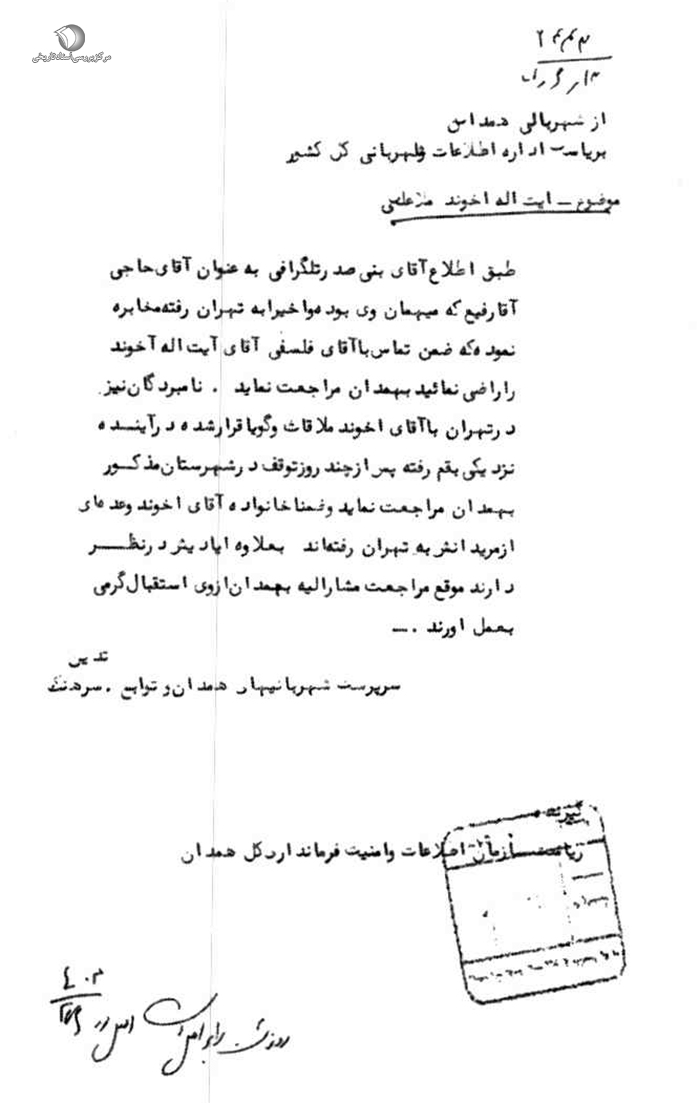 مرکز بررسی اسناد تاریخی
از شهربانی همدان
بریاست اداره اطلاعات شهربانی کل کشور
موضوع ــ ایت اله اخوند ملاعلی
طبق اطلاع آقای بنی صدر تلگرافی به عنوان آقای حاجی
آقا رفیع که میهمان وی بوده و اخیرا به تهران رفته مخابره
نموده که ضمن تماس با آقای فلسفی آقای آیت اله آخوند
را راضی نمائید بهمدان مراجعت نماید . نامبردگان نیز
در تهران با آقای اخوند ملاقات و گویا قرار شده در آینده
نزدیکی بقم رفته پس از چند روز توقف در شهرستان مذکور
بهمدان مراجعت نماید و ضمنا خانواده آقای اخوند و عده ای
از مریدانش به تهران رفته اند بعلاوه ایادیش در نظر
دارند موقع مراجعت مشارالیه بهمدان از وی استقبال گرمی
بعمل اورند . ــ
سرپرست شهربانیهای همدان و توابع . سرهنگ
گیرنده
ریاست سازمان اطلاعات و امنیت فرمانداریکل همدان